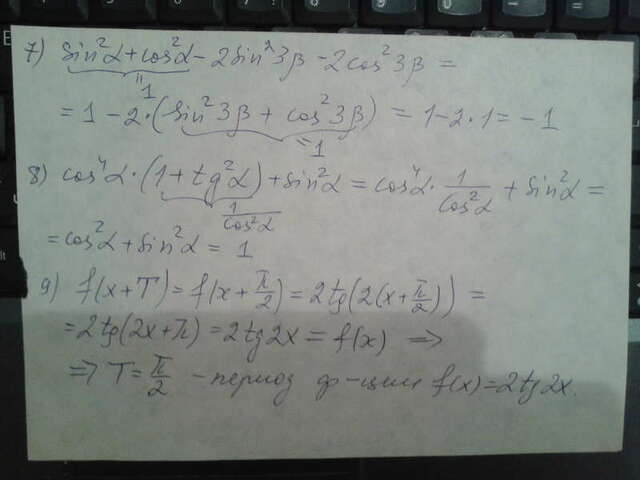 7) sin²α + cos²α - 2sin²3β - 2cos²3β =
"1
= 1 - 2·(sin²3β + cos²3β) = 1 - 2·1 = -1
=1
8) cos⁴α·(1 + tg²α) + sin²α = cos⁴α · 1/cos²α + sin²α =
1/cos²α
= cos²α + sin²α = 1
9) f(x+T) = f(x + π/2) = 2tg(2(x + π/2)) =
= 2tg(2x + π) = 2tg2x = f(x) ⟹
⟹ T = π/2 - период ф-ции f(x) = 2tg2x.